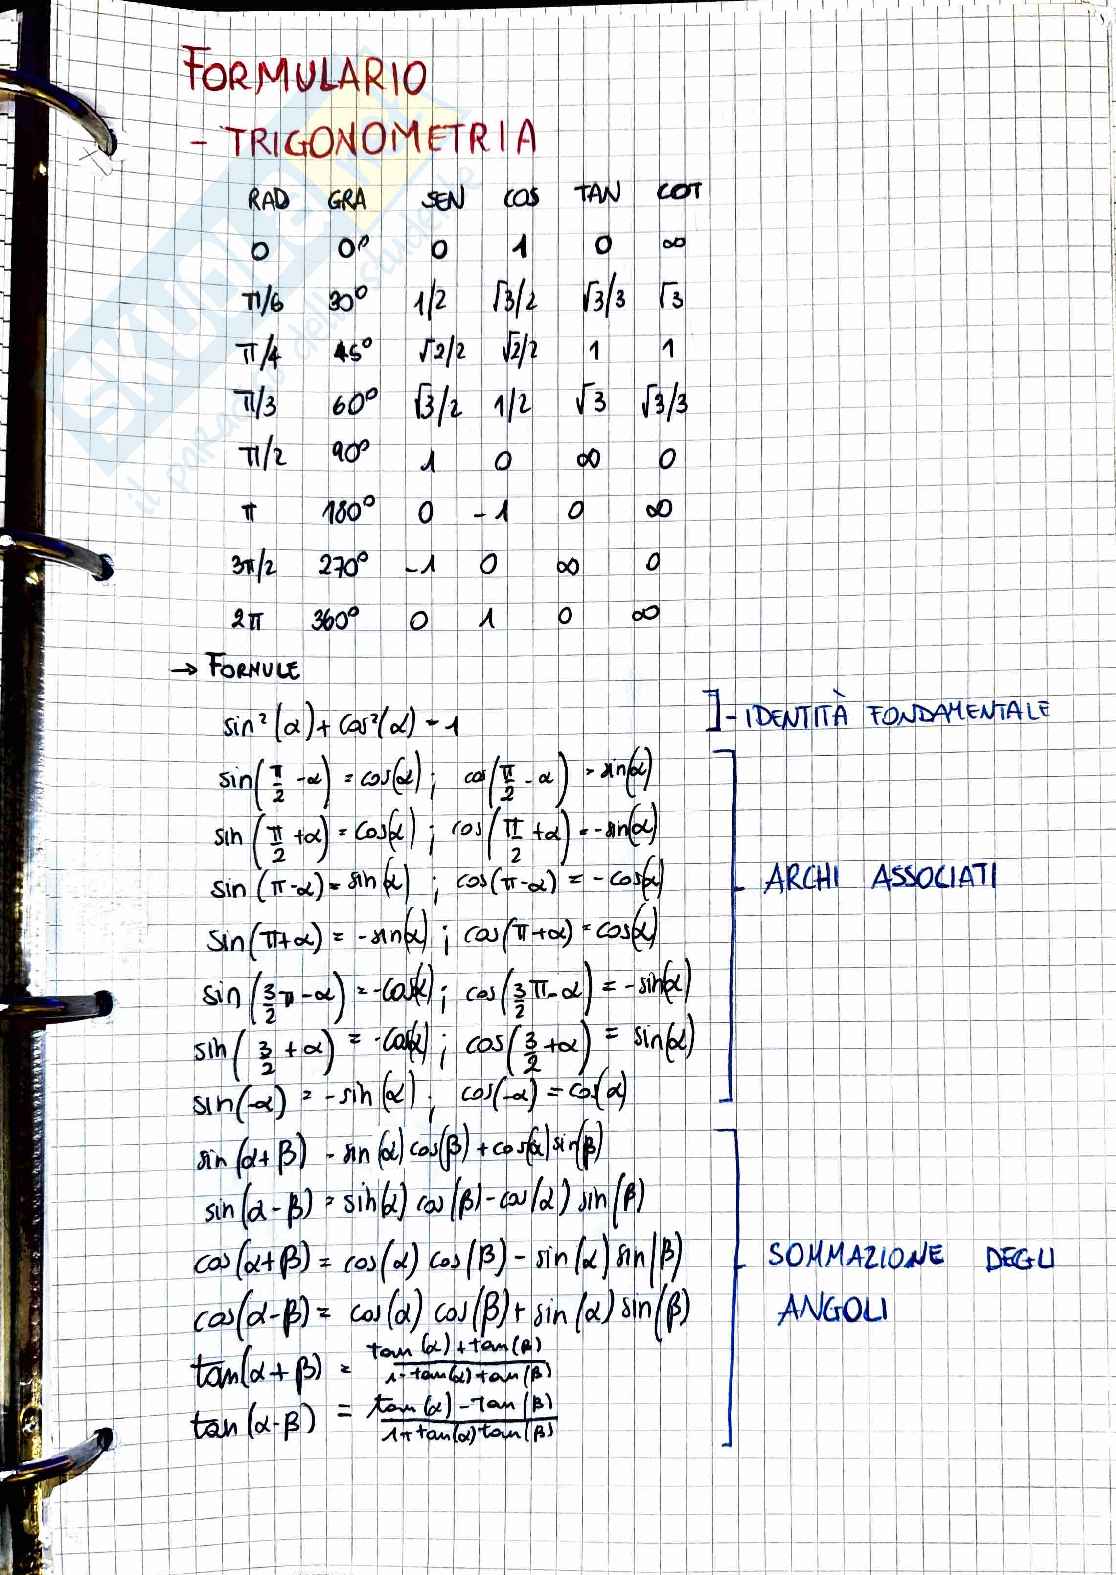 FORMULARIO
- TRIGONOMETRIA
RAD GRA SEN COS TAN COT
0 0° 0 1 0 ∞
π/6 30° 1/2 √3/2 √3/3 √3
π/4 45° √2/2 √2/2 1 1
π/3 60° √3/2 1/2 √3 √3/3
π/2 90° 1 0 ∞ 0
π 180° 0 -1 0 ∞
3π/2 270° -1 0 ∞ 0
2π 360° 0 1 0 ∞
→ FORMULE
sin²(α)+cos²(α)=1 ]- IDENTITÀ FONDAMENTALE
sin(π/2-α)=cos(α); cos(π/2-α)=sin(α)
sin(π/2+α)=cos(α); cos(π/2+α)=-sin(α)
sin(π-α)=sin(α); cos(π-α)=-cos(α)
ARCHI ASSOCIATI
sin(π+α)=-sin(α); cos(π+α)=cos(α)
sin(3/2π-α)=-cos(α); cos(3/2π-α)=-sin(α)
sin(3/2+α)=-cos(α); cos(3/2+α)=sin(α)
sin(-α)=-sin(α); cos(-α)=cos(α)
sin(α+β)=sin(α)cos(β)+cos(α)sin(β)
sin(α-β)=sin(α)cos(β)-cos(α)sin(β)
cos(α+β)=cos(α)cos(β)-sin(α)sin(β)
SOMMAZIONE DEGLI
ANGOLI
cos(α-β)=cos(α)cos(β)+sin(α)sin(β)
tan(α+β)=tan(α)+tan(β)/1-tan(α)tan(β)
tan(α-β)=tan(α)-tan(β)/1+tan(α)tan(β)